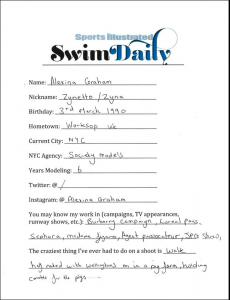 Sports Illustrated
SwimDaily
Name: Alexina Graham
Nickname: Zynette / Zyna
Birthday: 3rd March 1990
Hometown: Worksop UK
Current City: NYC
NYC Agency: Society models
Years Modeling: 6
Twitter: @ /
Instagram: @ Alexina Graham
You may know my work in (campaigns, TV appearances,
runway shows, etc.): Burberry campaign, L'oreal Paris,
Sephora, madame figaro, Agent provocateur,
The craziest thing I've ever had to do on a shoot is walk
naked with wellingtons on in a pig farm, holding
carrots for the pigs ....